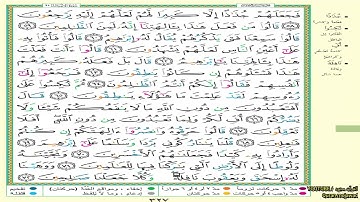 فَجَعَلَهُمْ جُذَٰذًا إِلَّا كَبِيرًا لَّهُمْ لَعَلَّهُمْ إِلَيْهِ يَرْجِعُونَ ٥٨
قَالُوا۟ مَن فَعَلَ هَٰذَا بِـَٔالِهَتِنَآ إِنَّهُۥ لَمِنَ ٱلظَّٰلِمِينَ ٥٩ قَالُوا۟
سَمِعْنَا فَتًى يَذْكُرُهُمْ يُقَالُ لَهُۥٓ إِبْرَٰهِيمُ ٦٠ قَالُوا۟ فَأْتُوا۟ بِهِۦ
عَلَىٰٓ أَعْيُنِ ٱلنَّاسِ لَعَلَّهُمْ يَشْهَدُونَ ٦١ قَالُوٓا۟ ءَأَنتَ فَعَلْتَ
هَٰذَا بِـَٔالِهَتِنَا يَٰٓإِبْرَٰهِيمُ ٦٢ قَالَ بَلْ فَعَلَهُۥ كَبِيرُهُمْ
هَٰذَا فَسْـَٔلُوهُمْ إِن كَانُوا۟ يَنطِقُونَ ٦٣ فَرَجَعُوٓا۟ إِلَىٰٓ
أَنفُسِهِمْ فَقَالُوٓا۟ إِنَّكُمْ أَنتُمُ ٱلظَّٰلِمُونَ ٦٤ ثُمَّ نُكِسُوا۟ عَلَىٰ
رُءُوسِهِمْ لَقَدْ عَلِمْتَ مَا هَٰٓؤُلَآءِ يَنطِقُونَ ٦٥ قَالَ
أَفَتَعْبُدُونَ مِن دُونِ ٱللَّهِ مَا لَا يَنفَعُكُمْ شَيْـًٔا وَلَا يَضُرُّكُمْ ٦٦
أُفٍّ لَّكُمْ وَلِمَا تَعْبُدُونَ مِن دُونِ ٱللَّهِ أَفَلَا
تَعْقِلُونَ ٦٧ قَالُوا۟ حَرِّقُوهُ وَٱنصُرُوٓا۟ ءَالِهَتَكُمْ إِن كُنتُمْ
فَٰعِلِينَ ٦٨ قُلْنَا يَٰنَارُ كُونِى بَرْدًا وَسَلَٰمًا عَلَىٰٓ إِبْرَٰهِيمَ ٦٩
وَأَرَادُوا۟ بِهِۦ كَيْدًا فَجَعَلْنَٰهُمُ ٱلْأَخْسَرِينَ ٧٠ وَنَجَّيْنَٰهُ
وَلُوطًا إِلَى ٱلْأَرْضِ ٱلَّتِى بَٰرَكْنَا فِيهَا لِلْعَٰلَمِينَ ٧١ وَوَهَبْنَا
لَهُۥٓ إِسْحَٰقَ وَيَعْقُوبَ نَافِلَةً وَكُلًّا جَعَلْنَا صَٰلِحِينَ ٧٢
٣٢٧